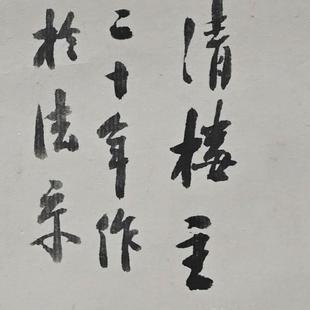 清梅主
二十年作
於法京